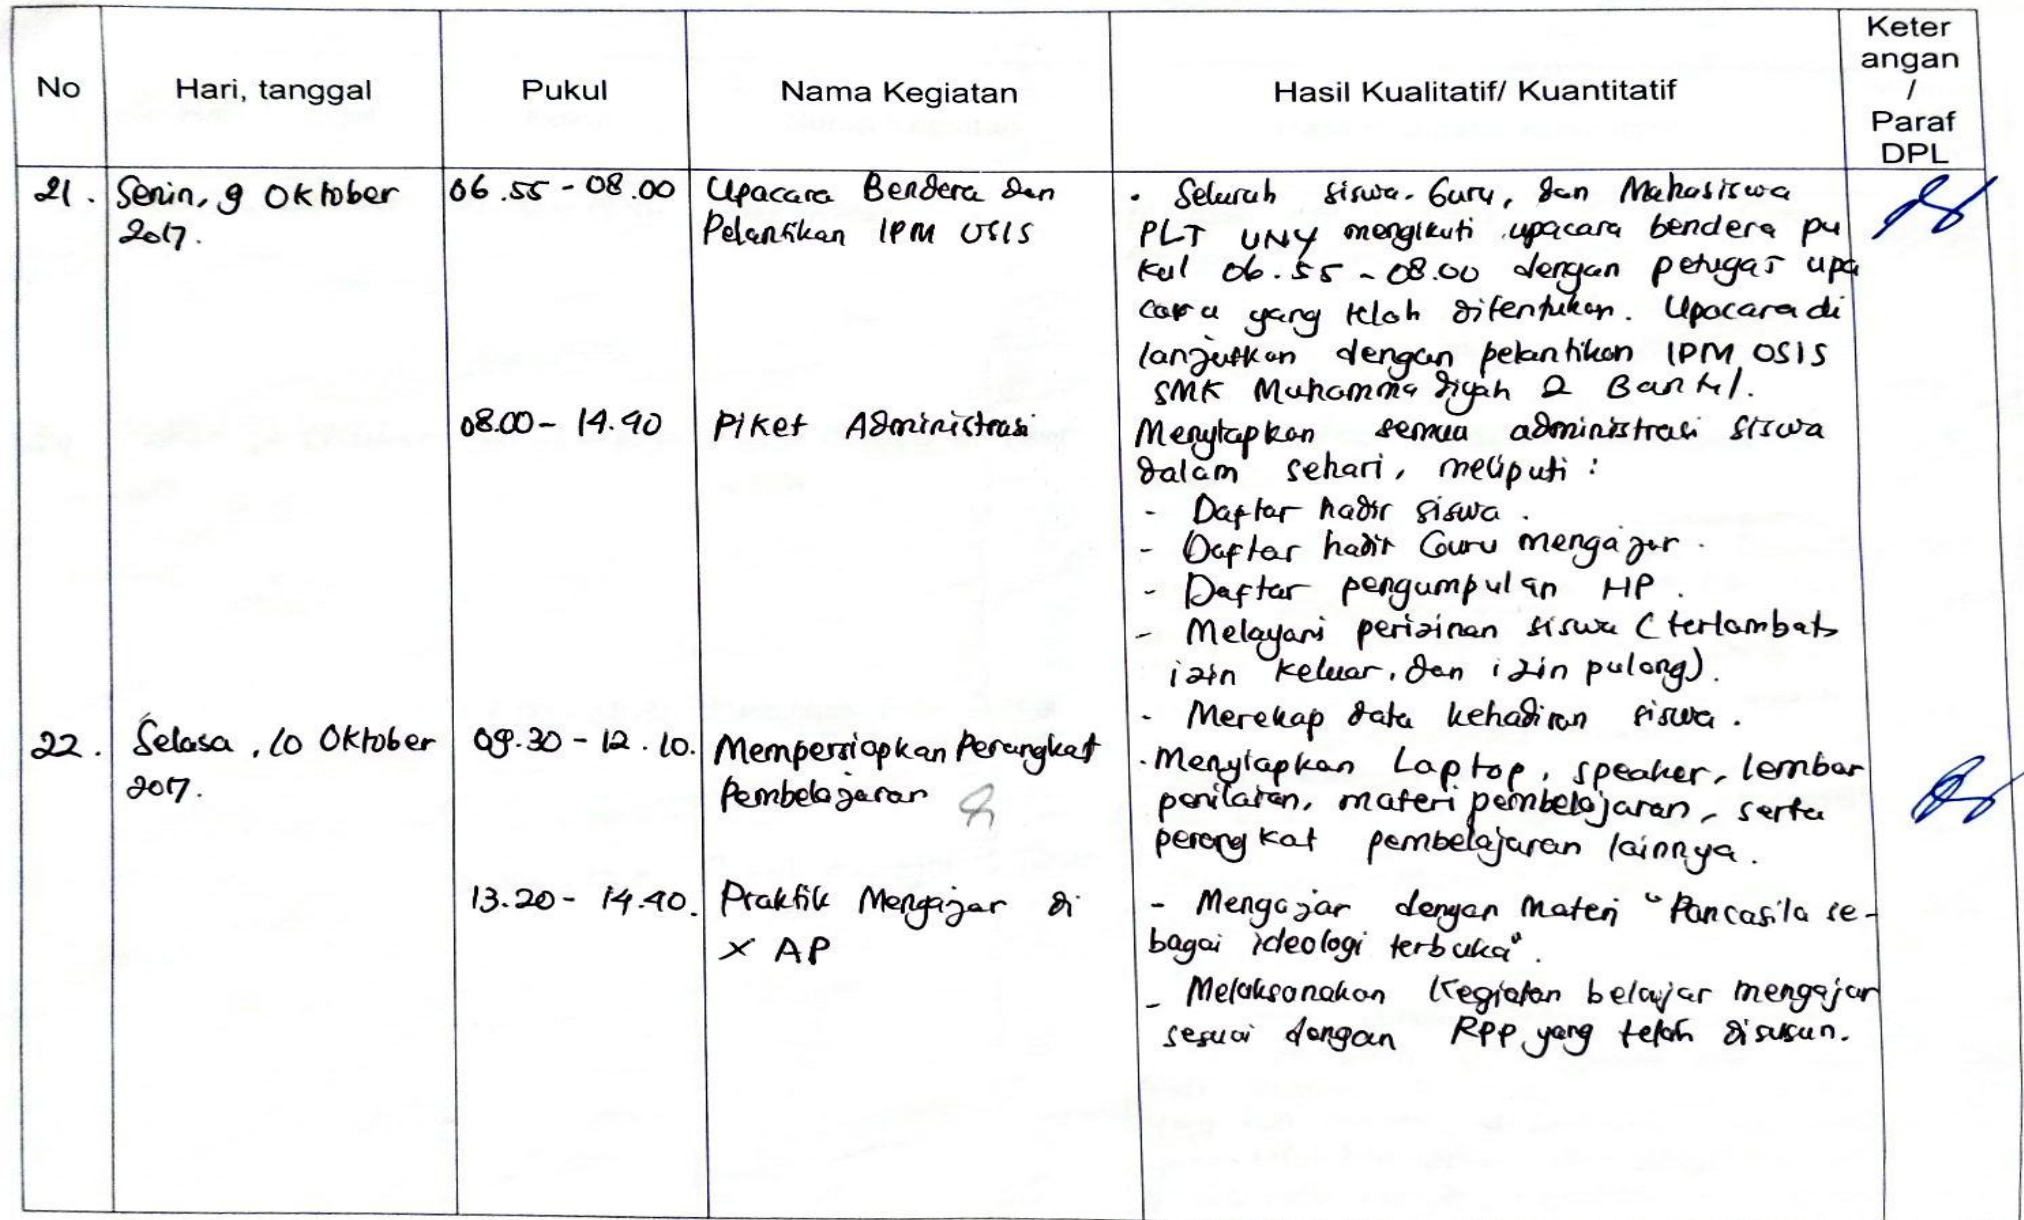 No Hari, tanggal Pukul Nama Kegiatan Hasil Kualitatif/ Kuantitatif Keter
angan
/
Paraf
DPL
21. Senin, 9 Oktober 06.55 - 08.00 Upacara Bendera dan · Seluruh siswa. Guru, dan Mahasiswa
2017. Pelantikan IPM OSIS PLT UNY mengikuti upacara bendera pu
kul 06.55 - 08.00 dengan petugas upa
cara yang telah ditentukan. Upacara di
lanjutkan dengan pelantikan IPM OSIS
SMK Muhammadiyah 2 Bantul.
08.00 - 14.40 Piket Administrasi Menyiapkan semua administrasi siswa
dalam sehari, meliputi :
- Daftar hadir siswa.
- Daftar hadir Guru mengajar.
- Daftar pengumpulan HP.
- Melayani perizinan siswa (terlambat,
izin keluar, dan izin pulang).
- Merekap data kehadiran siswa.
22. Selasa, 10 Oktober 09.30 - 12.10. Mempersiapkan Perangkat · Menyiapkan Laptop, speaker, lembar
2017. Pembelajaran penilaian, materi pembelajaran, serta
perangkat pembelajaran lainnya.
13.20 - 14.40. Praktik Mengajar di - Mengajar dengan materi "Pancasila se-
X AP bagai ideologi terbuka".
- Melaksanakan Kegiatan belajar mengajar
sesuai dengan RPP yang telah disusun.